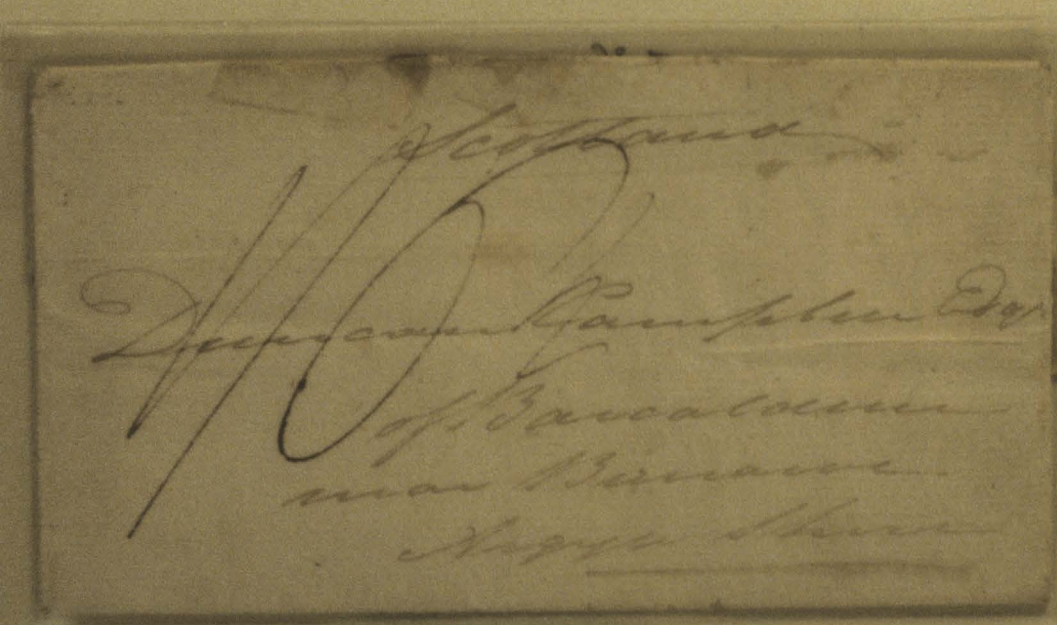 Scotland
Duncan Campbell Esqr
of Barcaldine
near Bunawe
Argyle Shire